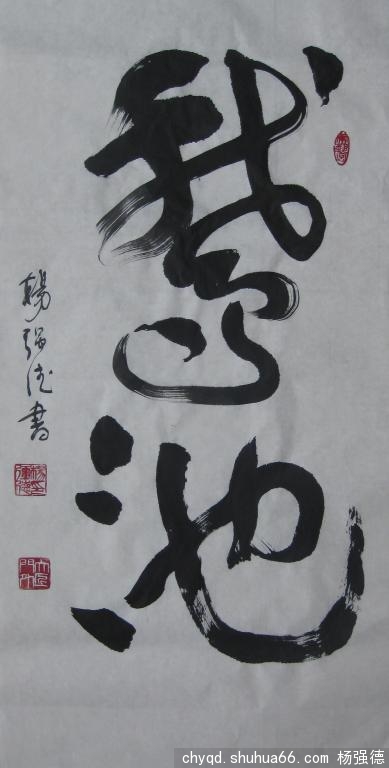 鵞池
楊强德書
chyqd.shuhua66.com 杨强德